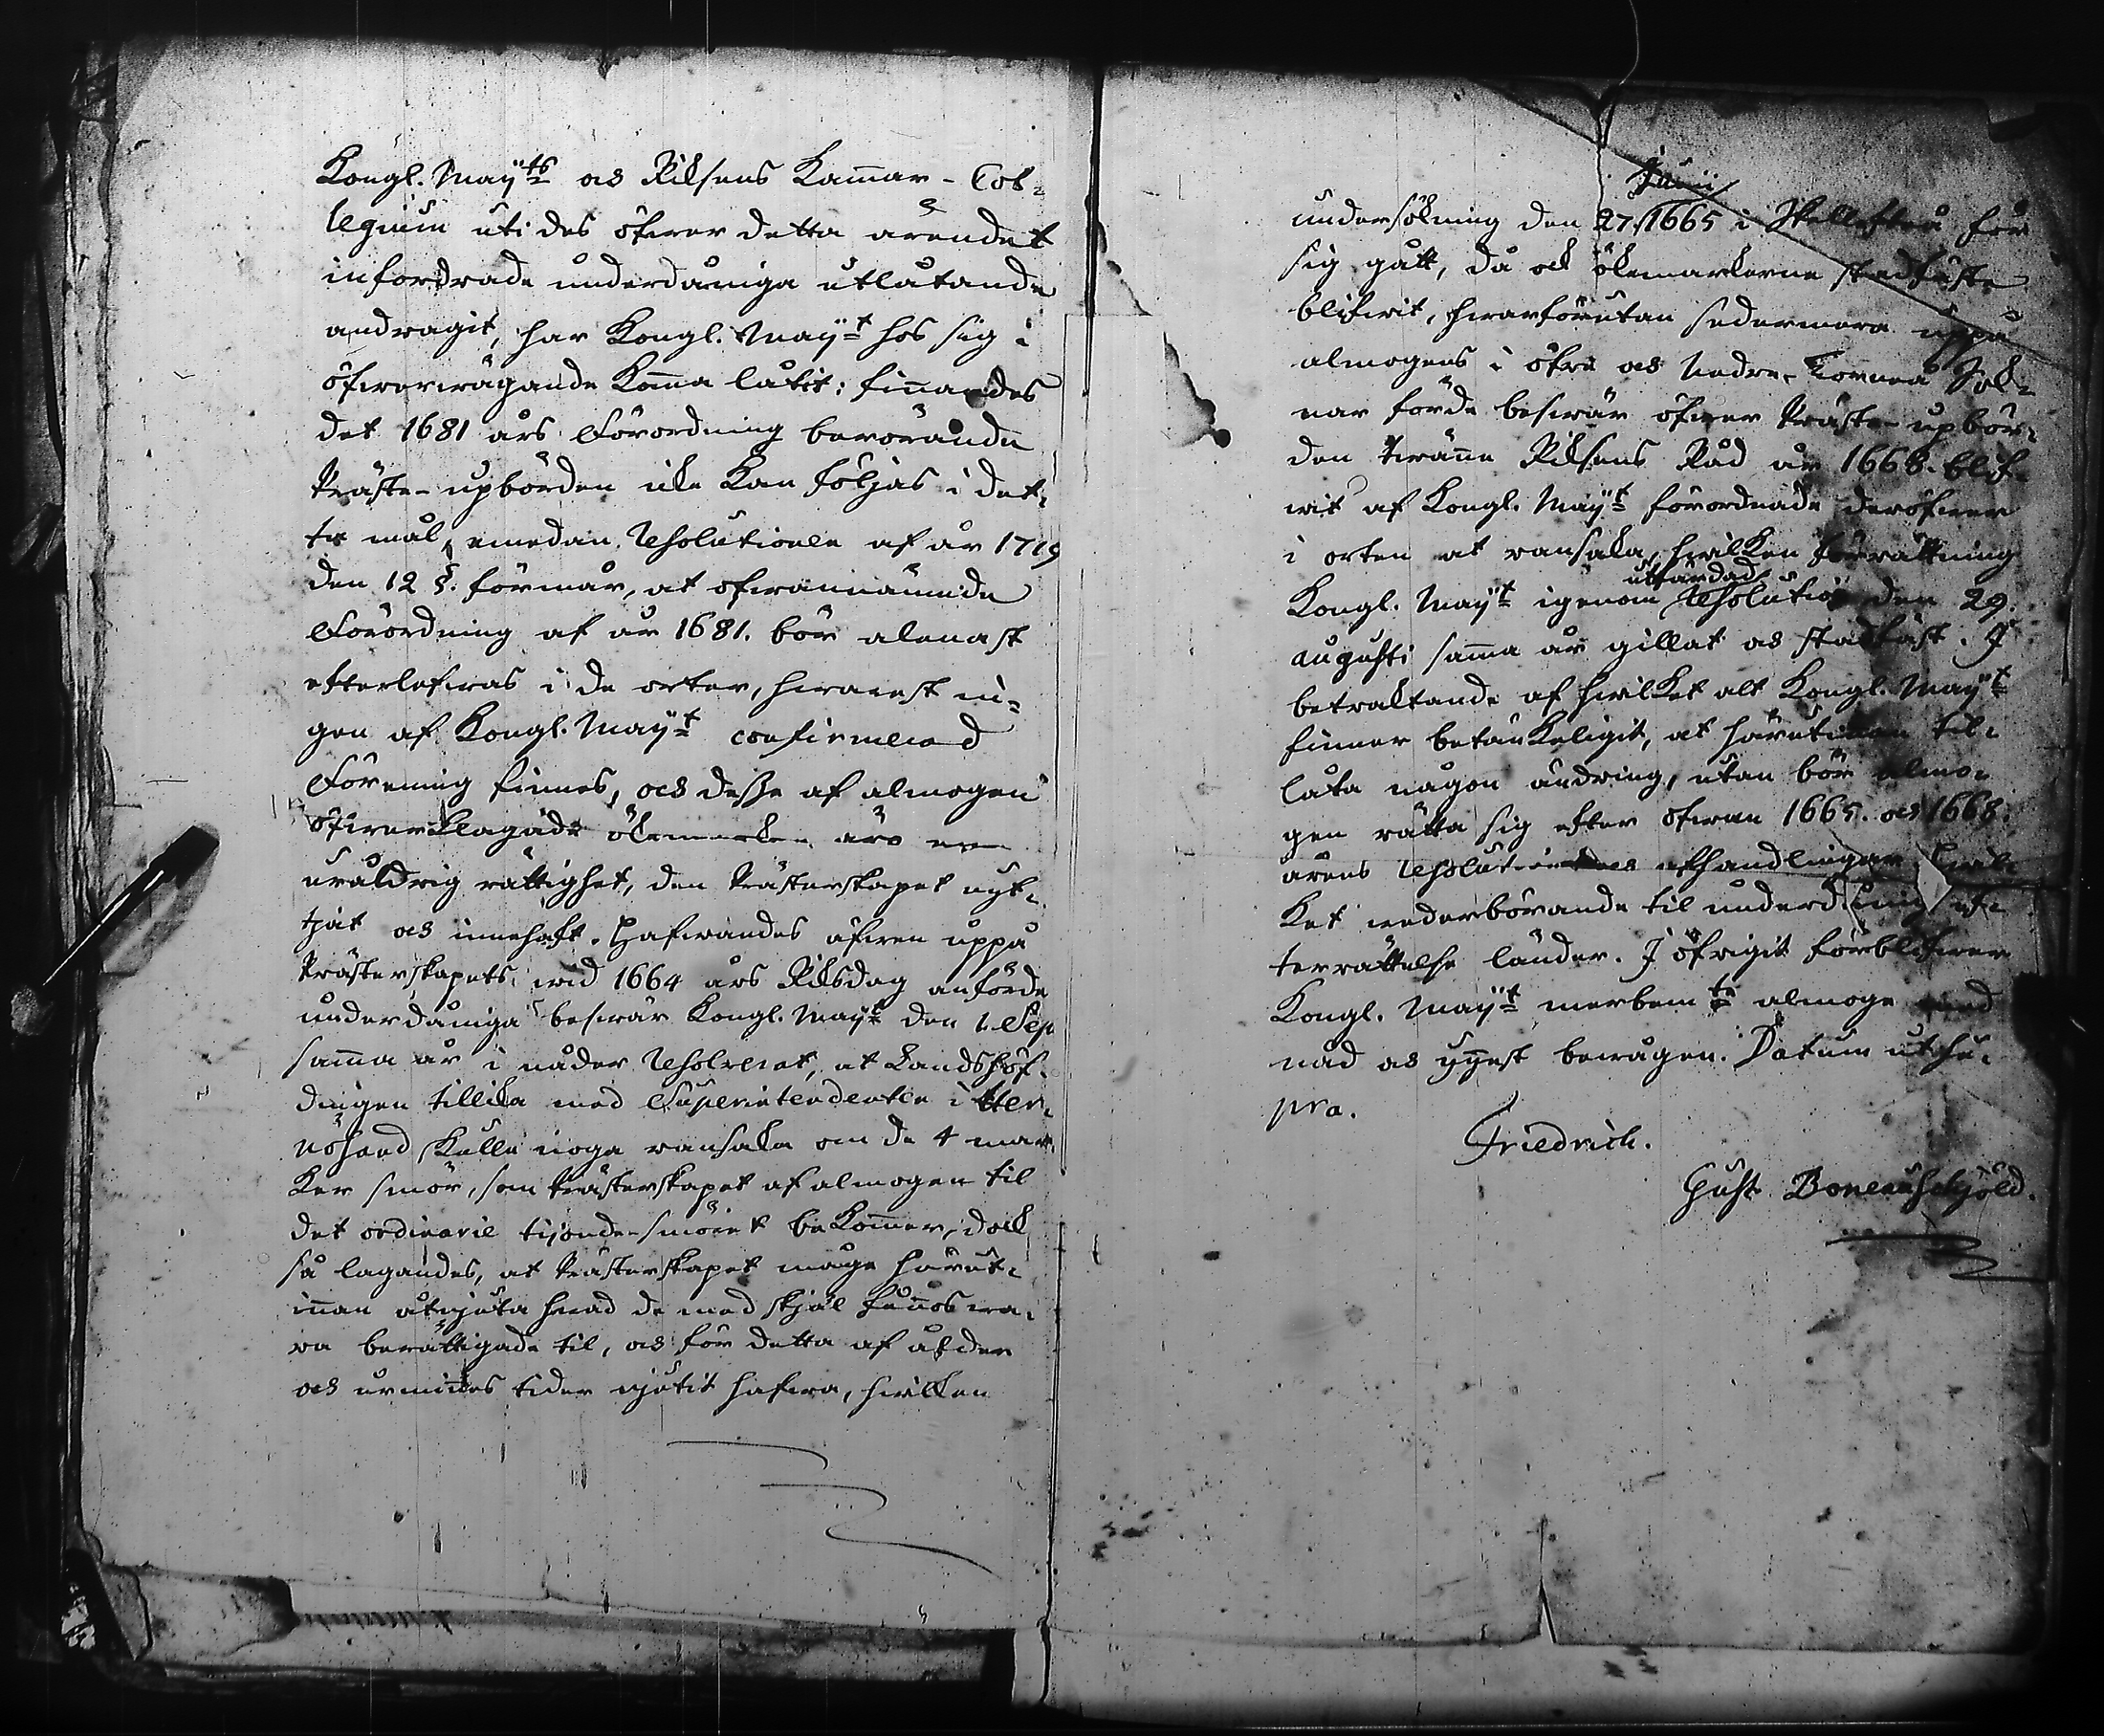 Kongl. May:ts och Riksens Kammar-Col-
legium uti des öfwer detta ärendet
infordrade underdåniga utlåtande
andragit, har Kongl. May:t hos sig i
öfwerwägande komma låtit: finnandes
det 1681 års Förordning berörande
Präste-upbörden icke kan följas i det-
ta mål, emedan Resolutionen af år 1719
den 12 §. förmår, at ofwannämnde
Förordning af år 1681. bör alenast
efterlefwas i de orter, hwarest in-
gen af Kongl. May:t confirmerad
Förening finnes, och desse af almogen
öfwerklagade ökemarker äro en
uråldrig rättighet, den Prästerskapet nyt-
tjat och innehaft. Hafwandes äfwen uppå
Prästerskapets wid 1664 års Riksdag anförde
underdåniga beswär Kongl. May:t den 1. Sep
samma år i nåder Resolverat, at Landshöf-
dingen tillika med Superintendenten i Her-
nösand skulle noga ransaka om de 4 mar-
ker smör, som Prästerskapet af almogen til
det ordinarie tijonde-smöret bekommer, dock
så lagandes, at Prästerskapet måge härut-
innan åtnjuta hwad de med skjäl funnos wa-
ra berättigade til, och för detta af ålder
och urminnes tider njutit hafwa, hwilken
Junii
undersökning den 27. 1665 i Skellefteå för
sig gått, då ock ökemarkerne stadfäste
blifwit, hwarförutan sedermera uppå
almogens i öfre och Nedre-Torneå Sok-
nar förde beswär öfwer Präste-upbör-
den twänne Riksens Råd år 1668. blif-
wit af Kongl. May:t förordnade deröfwer
i orten at ransaka, hwilken förrättning
utfärdad
Kongl. May:t igenom Resolution den 29.
augusti samma år gillat och stadfäst. I
betraktande af hwilket alt Kongl. May:t
finner betänkeligit, at härutinnan til-
låta någon ändring, utan bör almo-
gen rätta sig efter ofwan 1665. och 1668.
årens Resolutioner afhandlingar, hwil-
ket wederbörande til underdånig ef-
terrättelse länder. I öfrigit förblifwer
Kongl. May:t merbem:te almoge med
nåd och ynnest bewågen. Datum ut su-
pra.
Friedrich.
Gust. Boneauschjöld.